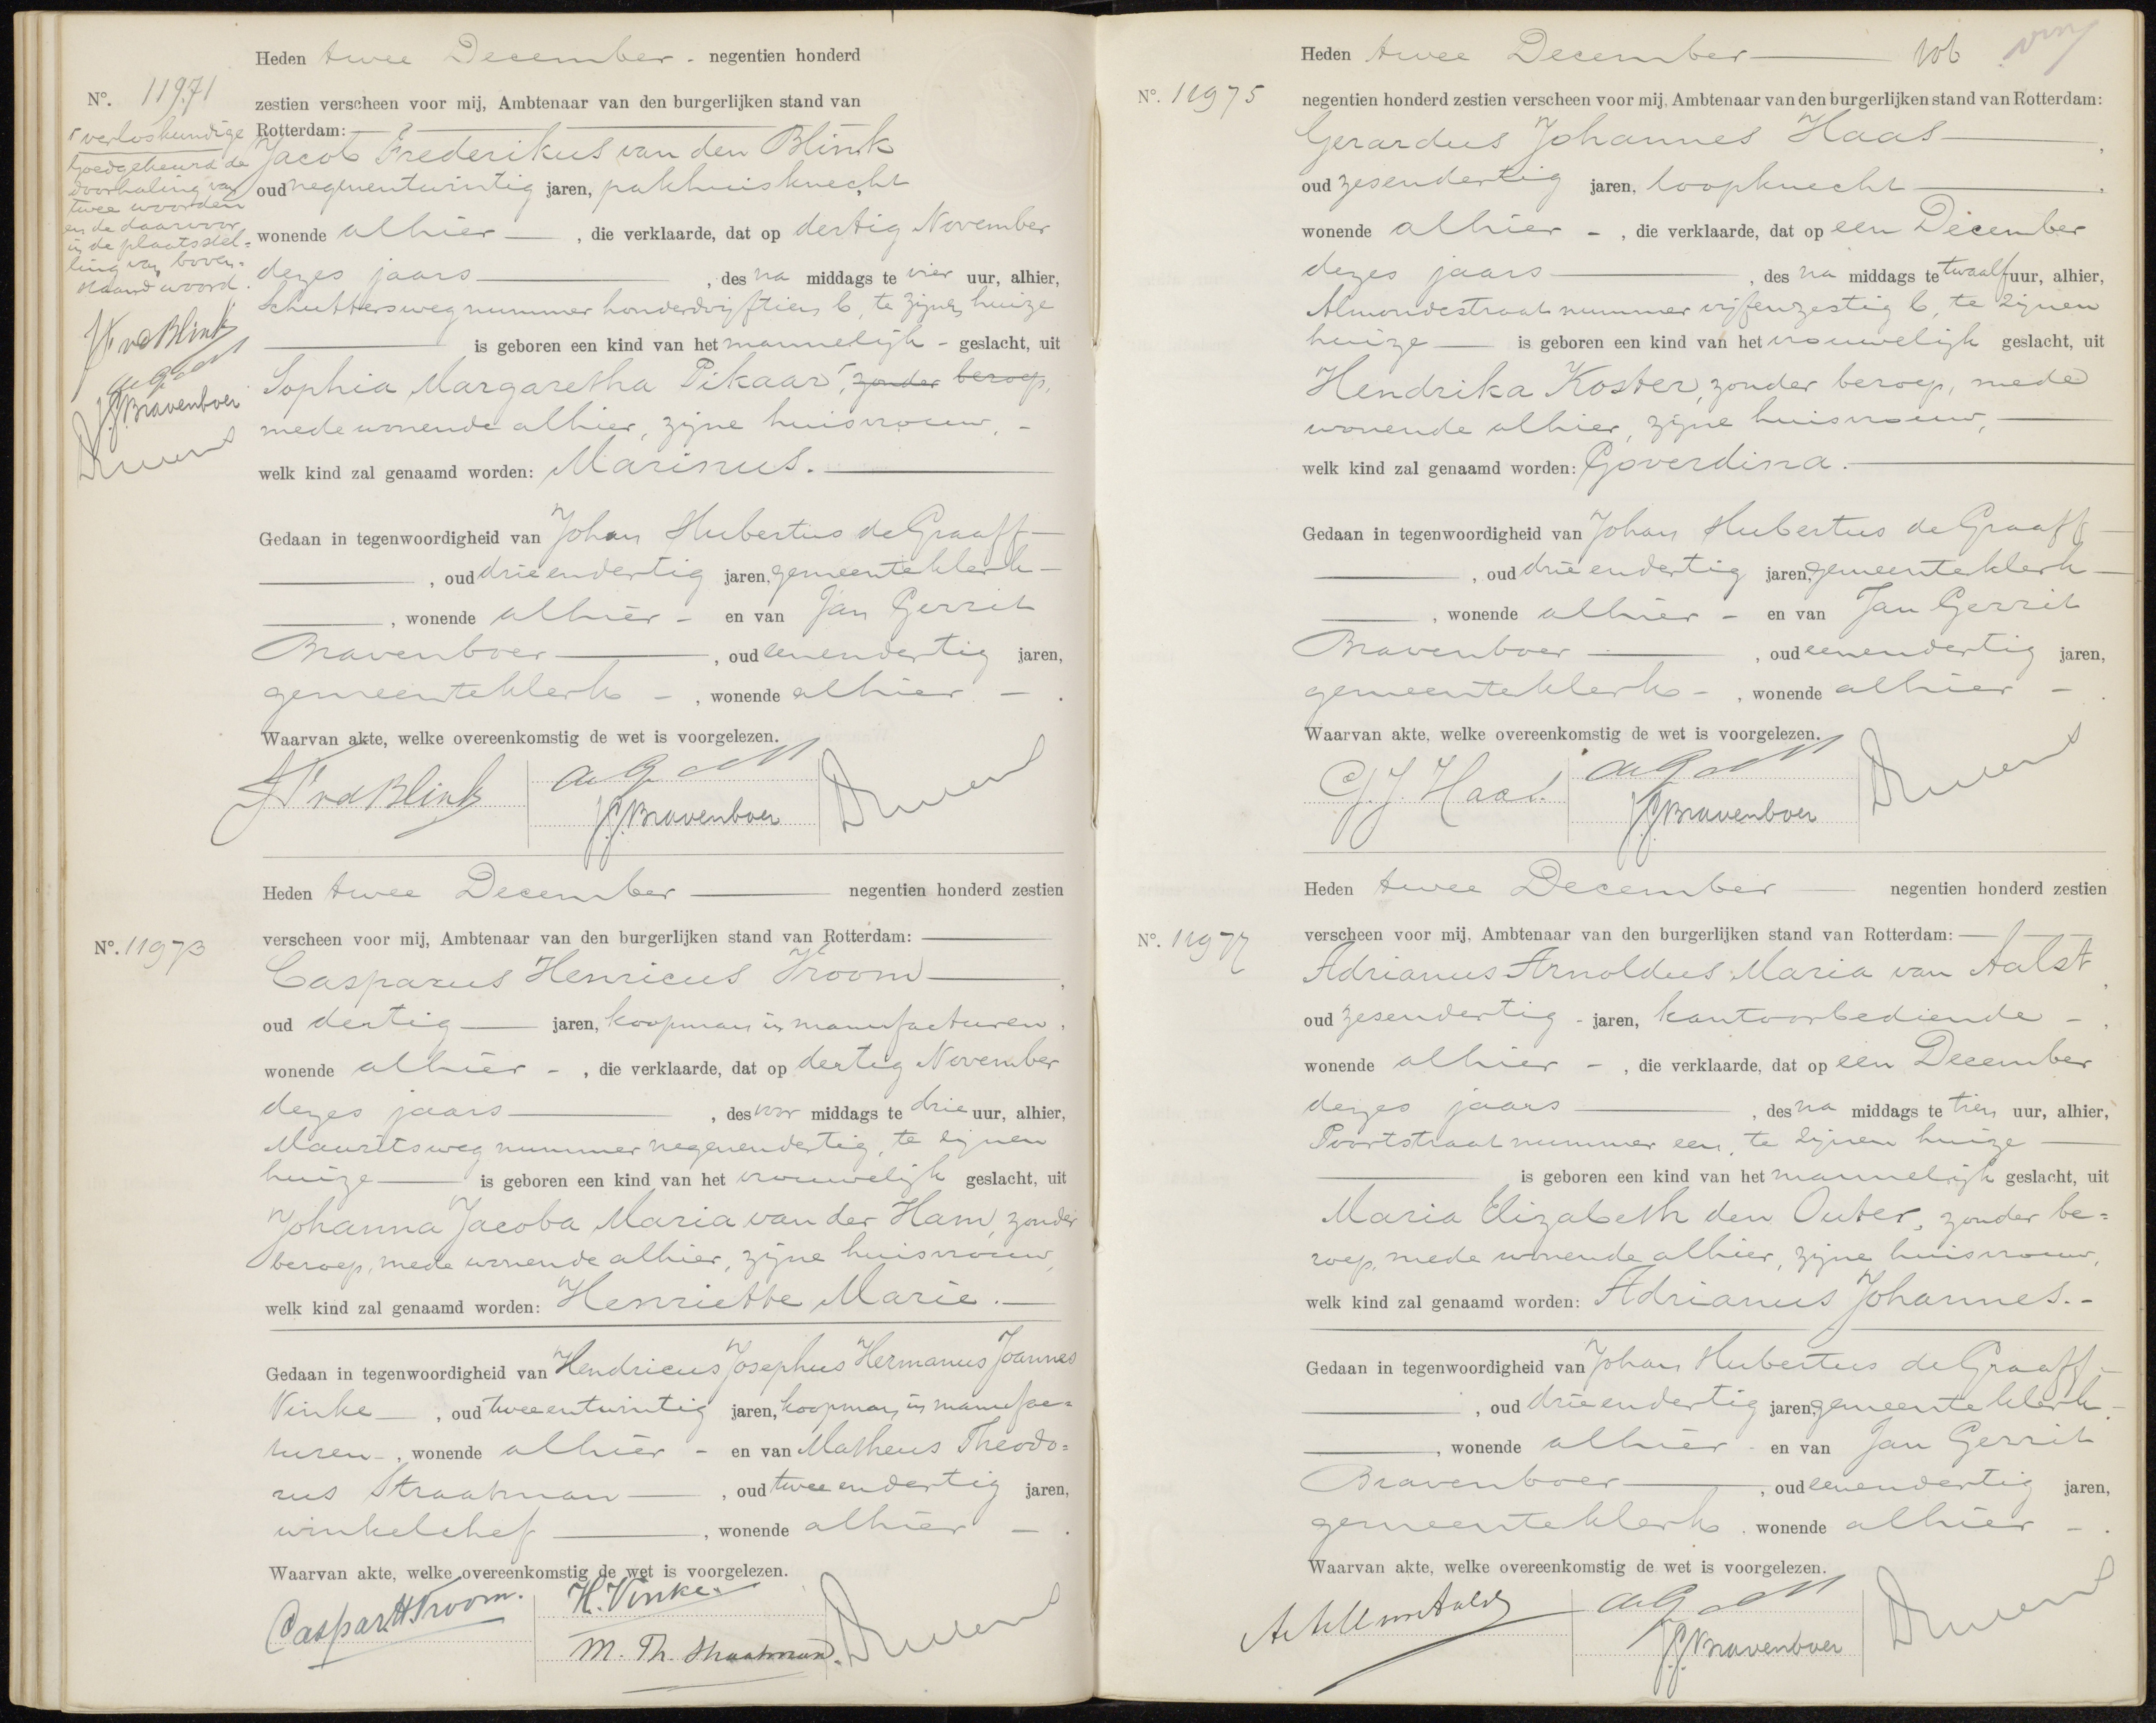 Heden twee December - negentien honderd
No. 11971
zestien verscheen voor mij, Ambtenaar van den burgerlijken stand van
Rotterdam:
Jacob Frederikus van den Blink
oud negenentwintig jaren, pakhuisknecht,
wonende alhier, die verklaarde, dat op dertig November
dezes jaars, des na middags te vier uur, alhier,
Schuttersweg nummer honderdvijftien b, te zijnen huize
is geboren een kind van het mannelijk - geslacht, uit
Sophia Margaretha Pikaar, zonder beroep,
mede wonende alhier, zijne huisvrouw, -
welk kind zal genaamd worden: Marinus.
Gedaan in tegenwoordigheid van Johan Hubertus de Graaff
, oud drieendertig jaren, gemeenteklerk
, wonende alhier - en van Jan Gerrit
Bravenboer, oud eenendertig jaren,
gemeenteklerk -, wonende alhier - .
Waarvan akte, welke overeenkomstig de wet is voorgelezen.
JF vd Blink
J.G. Bravenboer
verloskundige
Goedgekeurd de
doorhaling van
twee woorden
en de daarvoor
in de plaatsstel=
ling van boven=
staand woord.
JF vd Blink
J.G. Bravenboer
Heden twee December negentien honderd zestien
No. 11973
verscheen voor mij, Ambtenaar van den burgerlijken stand van Rotterdam:
Casparus Henricus Vroom,
oud dertig jaren, koopman in manufacturen,
wonende alhier -, die verklaarde, dat op dertig November
dezes jaars, des voor middags te drie uur, alhier,
Mauritsweg nummer negenendertig, te zijnen
huize is geboren een kind van het vrouwelijk geslacht, uit
Johanna Jacoba Maria van der Ham, zonder
beroep, mede wonende alhier, zijne huisvrouw,
welk kind zal genaamd worden: Henriette Marie.
Gedaan in tegenwoordigheid van Hendricus Josephus Hermanus Joannes
Vinke, oud tweeentwintig jaren, koopman in manufac=
turen -, wonende alhier - en van Matheus Theodo=
rus Straatman, oud tweeendertig jaren,
winkelchef, wonende alhier - .
Waarvan akte, welke overeenkomstig de wet is voorgelezen.
Caspar H Vroom.
H. Vinke.
M. Th. Straatman.
Heden twee December
No. 11975
negentien honderd zestien verscheen voor mij, Ambtenaar van den burgerlijken stand van Rotterdam:
Gerardus Johannes Haas,
oud zesendertig jaren, loopknecht,
wonende alhier -, die verklaarde, dat op een December
dezes jaars, des na middags te twaalf uur, alhier,
Almondestraat nummer vijfenzestig b, te zijnen
huize is geboren een kind van het vrouwelijk geslacht, uit
Hendrika Koster, zonder beroep, mede
wonende alhier, zijne huisvrouw,
welk kind zal genaamd worden: Goverdina.
Gedaan in tegenwoordigheid van Johan Hubertus de Graaff
, oud drieendertig jaren, gemeenteklerk
, wonende alhier - en van Jan Gerrit
Bravenboer, oud eenendertig jaren,
gemeenteklerk -, wonende alhier - .
Waarvan akte, welke overeenkomstig de wet is voorgelezen.
G.J. Haas.
J.G. Bravenboer
Heden twee December negentien honderd zestien
No. 11977
verscheen voor mij, Ambtenaar van den burgerlijken stand van Rotterdam:
Adrianus Arnoldus Maria van Aalst,
oud zesendertig - jaren, kantoorbediende -,
wonende alhier -, die verklaarde, dat op een December
dezes jaars, des na middags te tien uur, alhier,
Poortstraat nummer een, te zijnen huize
is geboren een kind van het mannelijk geslacht, uit
Maria Elizabeth den Outer, zonder be=
roep, mede wonende alhier, zijne huisvrouw,
welk kind zal genaamd worden: Adrianus Johannes. -
Gedaan in tegenwoordigheid van Johan Hubertus de Graaff
, oud drieendertig jaren, gemeenteklerk
, wonende alhier - en van Jan Gerrit
Bravenboer, oud eenendertig jaren,
gemeenteklerk, wonende alhier - .
Waarvan akte, welke overeenkomstig de wet is voorgelezen.
J.G. Bravenboer